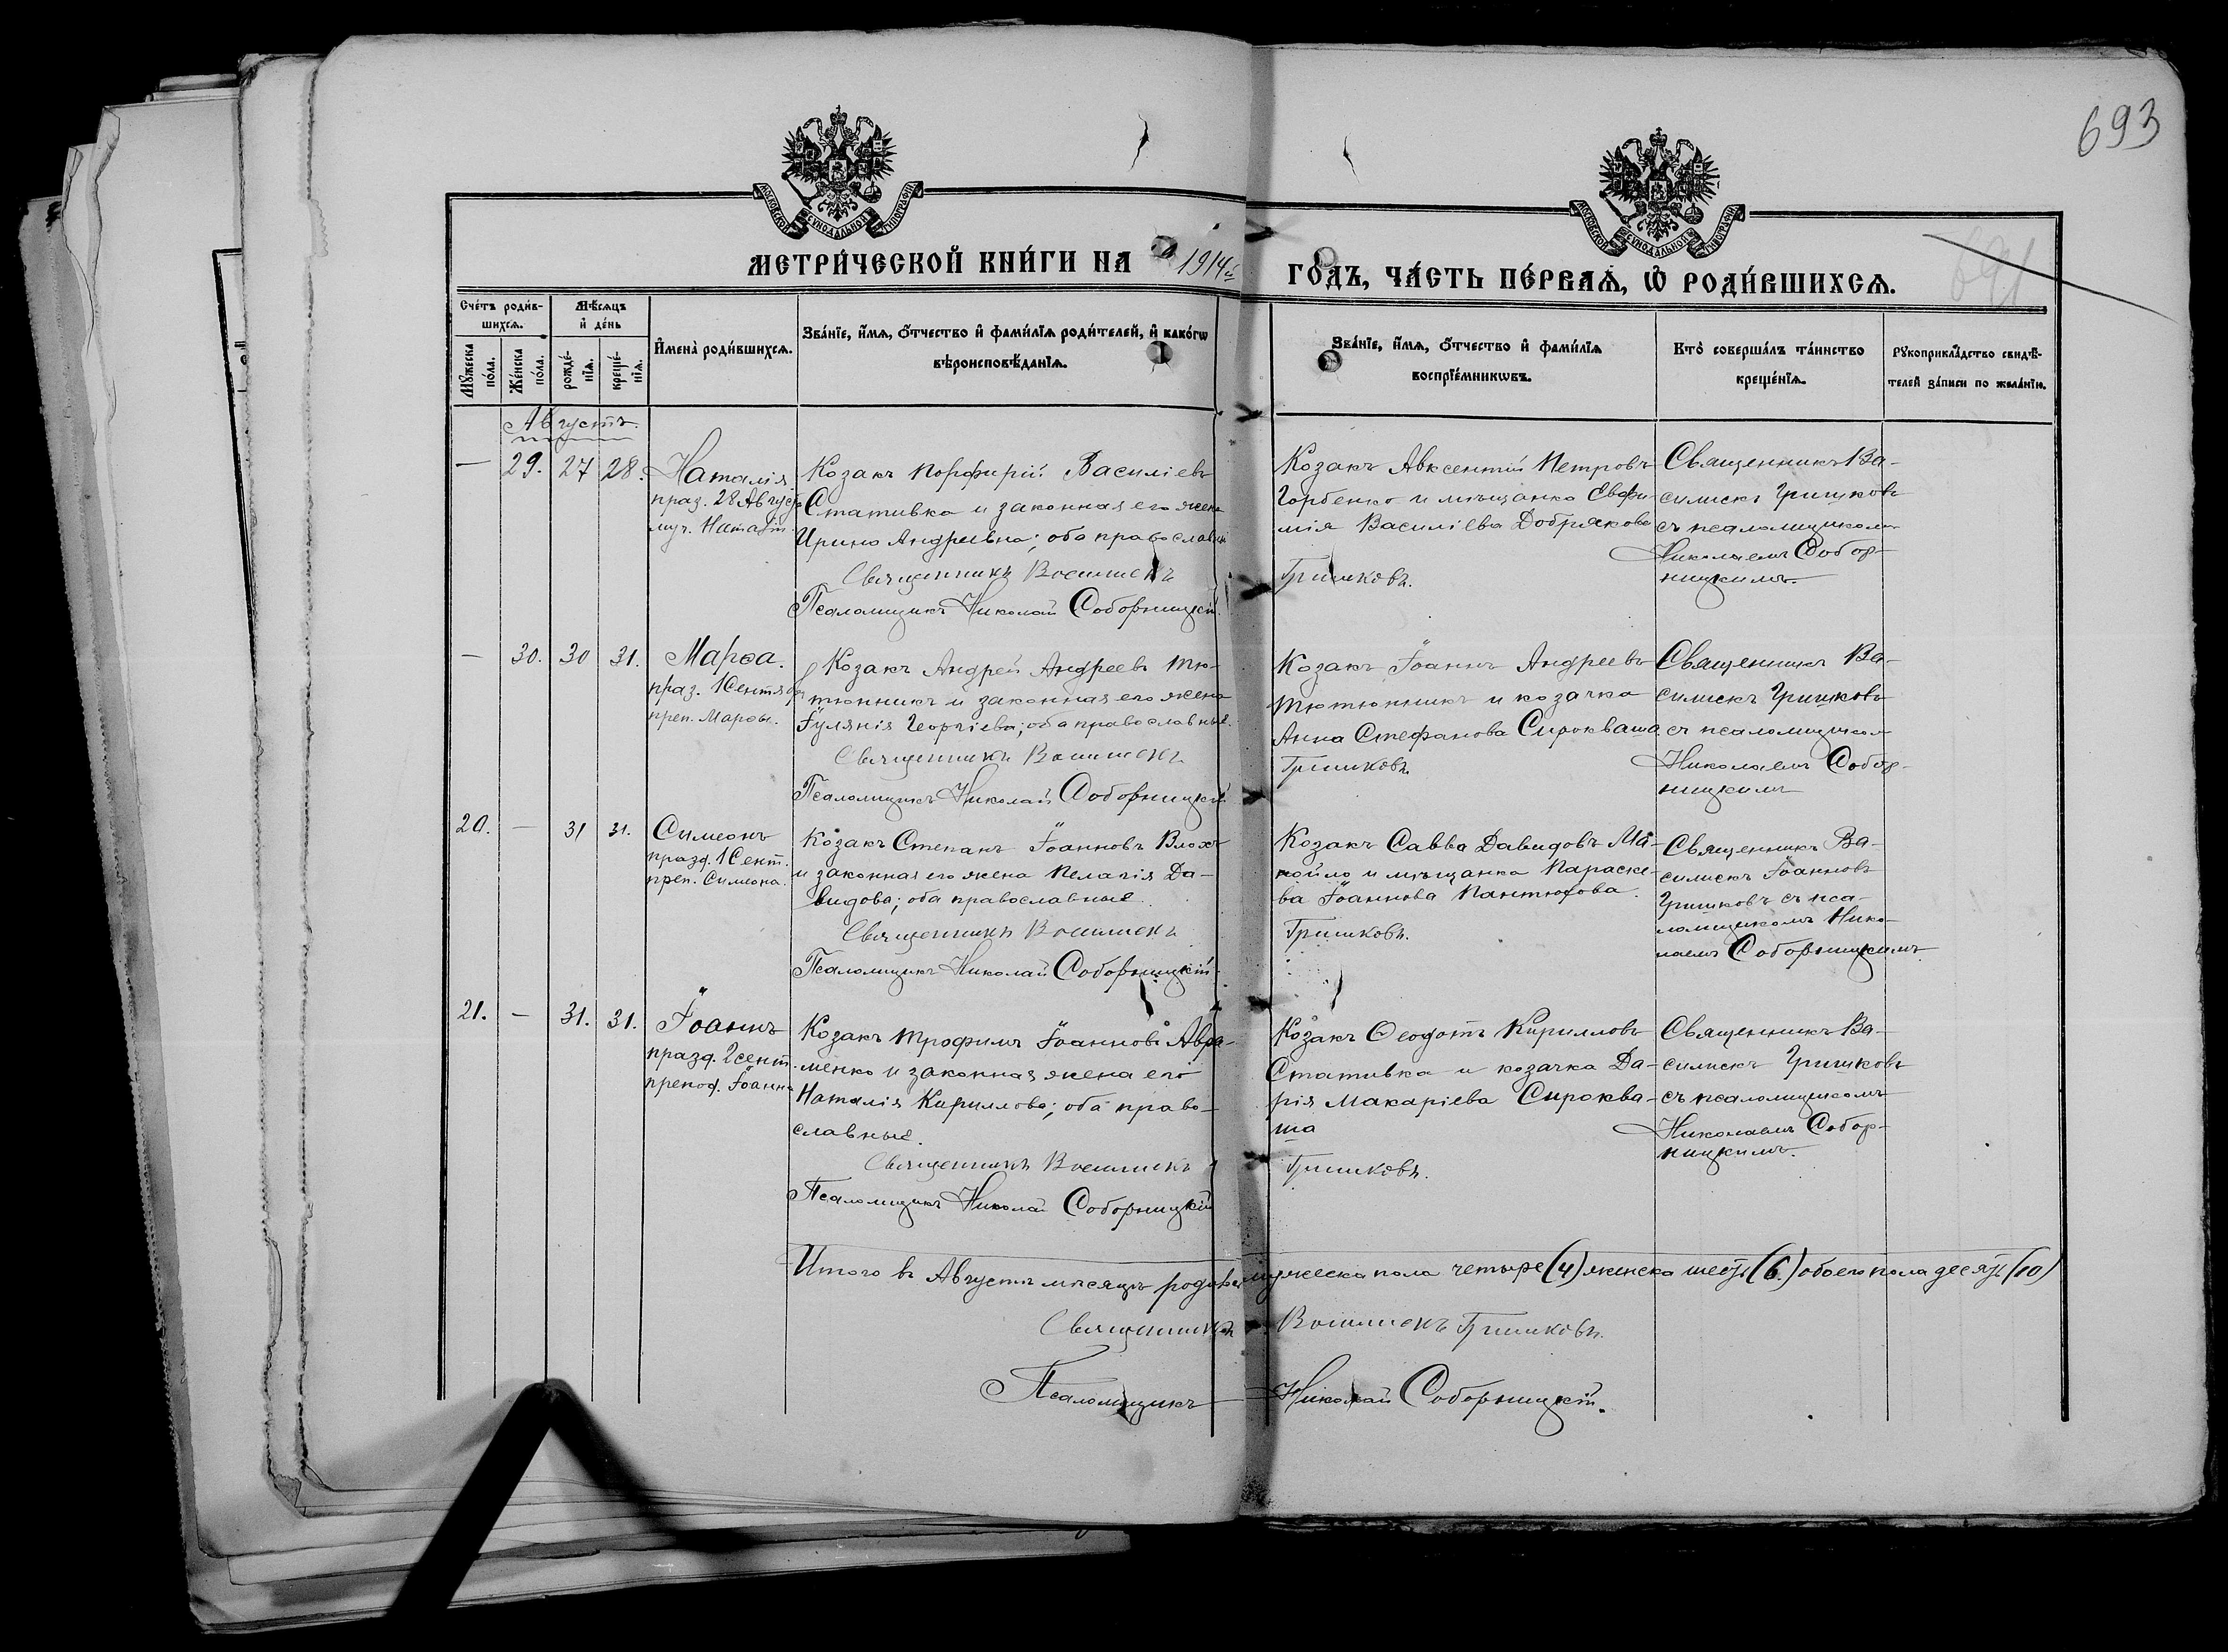 693
691
МОСКОВСКОЙ СѴНОДАЛЬНОЙ ТИПОГРАФІИ
МОСКОВСКОЙ СѴНОДАЛЬНОЙ ТИПОГРАФІИ
МЕТРИ́ЧЕСКОЙ КНИ́ГИ НА 1914й
ГО́ДЪ, ЧА́СТЬ ПЕ́РВАѦ, Ѽ РОДИ́ВШИХСѦ.
Сче́тъ роди́в-
шихсѧ.
Мѣ́сѧцъ
и҆ де́нь
Мꙋ́жеска
по́ла.
Же́нска
по́ла.
рожде́-
нїѧ.
креще́-
нїѧ.
И҆мена̀ роди́вшихсѧ.
Зва́нїе, и҆́мѧ, ѻ҆́тчество и҆ фами́лїѧ роди́телей, и҆ како́гѡ
вѣроисповѣ́данїѧ.
Зва́нїе, и҆́мѧ, ѻ҆́тчество и҆ фами́лїѧ
воспрїе́мникѡвъ.
Кто̀ соверша́лъ та́инство
креще́нїѧ.
Рꙋкоприкла́дство свидѣ́-
телей за́писи по жела́нїю.
Августъ.
— 29. 27 28.
Наталія.
праз. 28 Август
муч. Натал.
Козакъ Порфирій Василіевъ
Стативка и законная его жена
Ирина Андреевна; оба православн
Священникъ Василискъ
Псаломщикъ Николай Соборницкій.
Козакъ Авксентій Петровъ
Горбенко и мѣщанка Евфи-
мія Василіева Добрякова
Гришковъ.
Священникъ Ва-
силискъ Гришковъ
съ псаломщикомъ
Николаемъ Собор-
ницкимъ.
— 30. 30 31.
Марѳа.
праз. 1 Сентября
преп. Марѳы.
Козакъ Андрей Андреевъ Тю-
тюнникъ и законная его жена
Іуліанія Георгіева; оба православные.
Священникъ Василискъ
Псаломщикъ Николай Соборницкій
Козакъ Іоаннъ Андреевъ
Тютюнникъ и козачка
Анна Стефанова Сироквашa
Гришковъ.
Священникъ Ва-
силискъ Гришковъ
съ псаломщиком
Николаемъ Собор-
ницкимъ
20. — 31 31.
Симеонъ
празд. 1 Сент.
преп. Симеона.
Козакъ Степанъ Іоанновъ Влохъ
и законная его жена Пелагія Да-
видова; оба православные.
Священникъ Василискъ
Псаломщикъ Николай Соборницкій.
Козакъ Савва Давидовъ Ма-
нойло и мѣщанка Параске-
ва Іоаннова Пантюхова.
Гришковъ.
Священникъ Ва-
силискъ Іоанновъ
Гришковъ съ пса-
ломщикомъ Нико-
лаемъ Соборницкимъ.
21. — 31. 31.
Іоаннъ
празд. 2 сент.
препод. Іоанна
Козакъ Трофимъ Іоанновъ Авра-
менко и законная жена его
Наталія Кириллова; оба право-
славные.
Священникъ Василискъ
Псаломщикъ Николай Соборницкій
Козакъ Ѳеодотъ Кирилловъ
Стативка и козачка Да-
рія Макаріева Сироква-
ша
Гришковъ.
Священникъ Ва-
силискъ Гришковъ
съ псаломщикомъ
Николаемъ Собор-
ницкимъ.
Итого въ Августѣ мѣсяцѣ родилось мужеска пола четыре (4) женска шесть (6) обоего пола десять (10)
Священникъ Василискъ Гришковъ.
Псаломщикъ Николай Соборницкій.